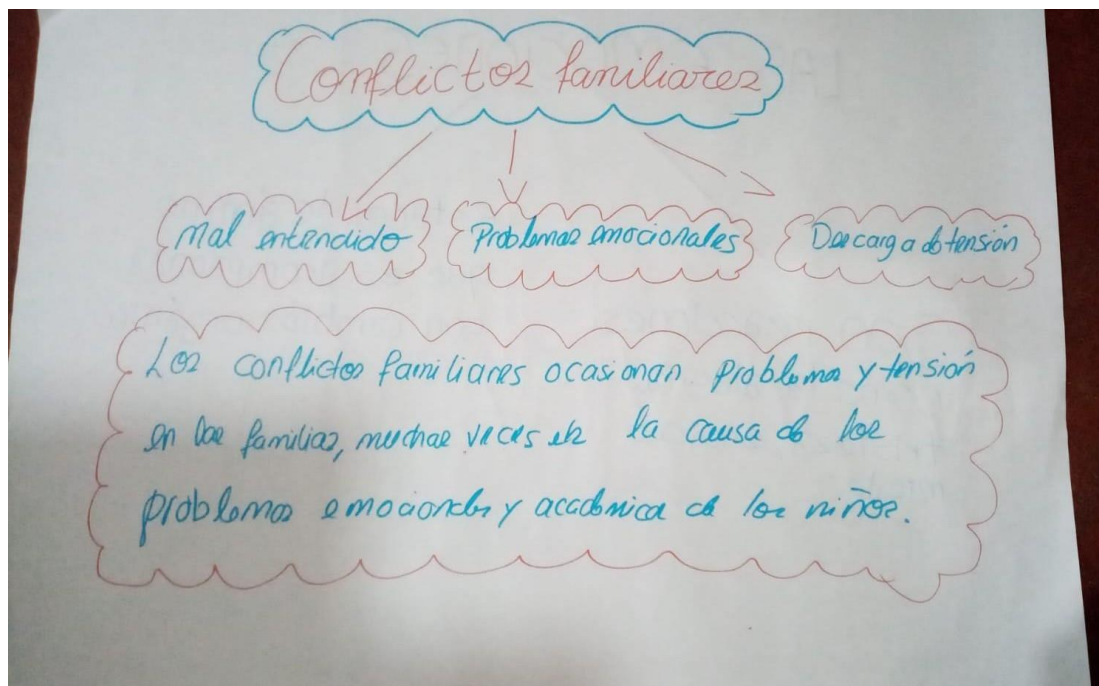 Conflictos familiares
Mal entendido Problemas emocionales Descarga de tensión
Los conflictos familiares ocasionan problemas y tensión
en las familias, muchas veces es la causa de los
problemas emocionales y academica de los niños.